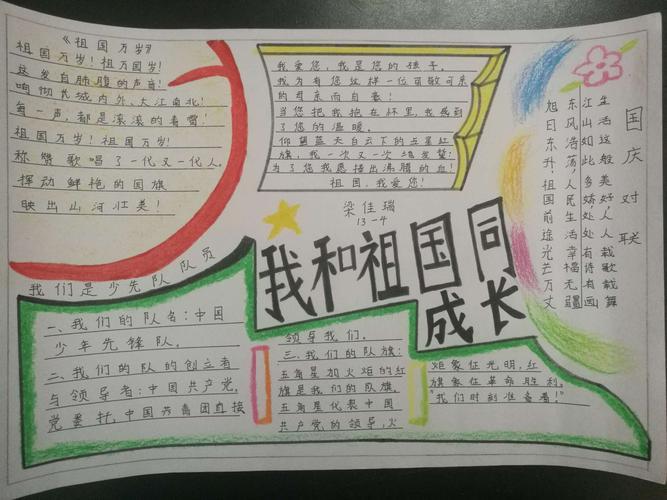 《祖国万岁》
祖国万岁！祖万国岁！
这发自肺腹的声音！
响彻长城内外、大江南北！
每一声，都是滚滚的春雷！
祖国万岁！祖国万岁！
称赞歌唱了一代又一代人。
挥动鲜艳的国旗
映出山河壮美！
我爱您，我是您的孩子。
我为有您这样一位可敬可亲
的母亲而自豪！
当您把我抱在怀里，我感到
了您的温暖。
仰望蓝天白云下的五星红
旗，我一次又一次地发誓：
为了您我愿擔出沸腾的血！
祖国，我爱您！
梁佳瑞
13-4
国庆对联
生活这般美好人人载歌载舞
江山如此多娇，处处有诗有画
东风浩荡，人民生活幸福无疆
旭日东升，祖国前途光芒万丈
我和祖国同
成长
我们是少先队队员
一、我们的队名：中国
少年先锋队。
二、我们的队的创立者
与领导者：中国共产党
党委托，中国共青团直接
领导我们。
三、我们的队旗：
五角星加火炬的红
旗是我们的队旗。
五角星代表中国
共产党的领导，火
炬象征光明，红
旗象征革命胜利。
"我们时刻准备着！"